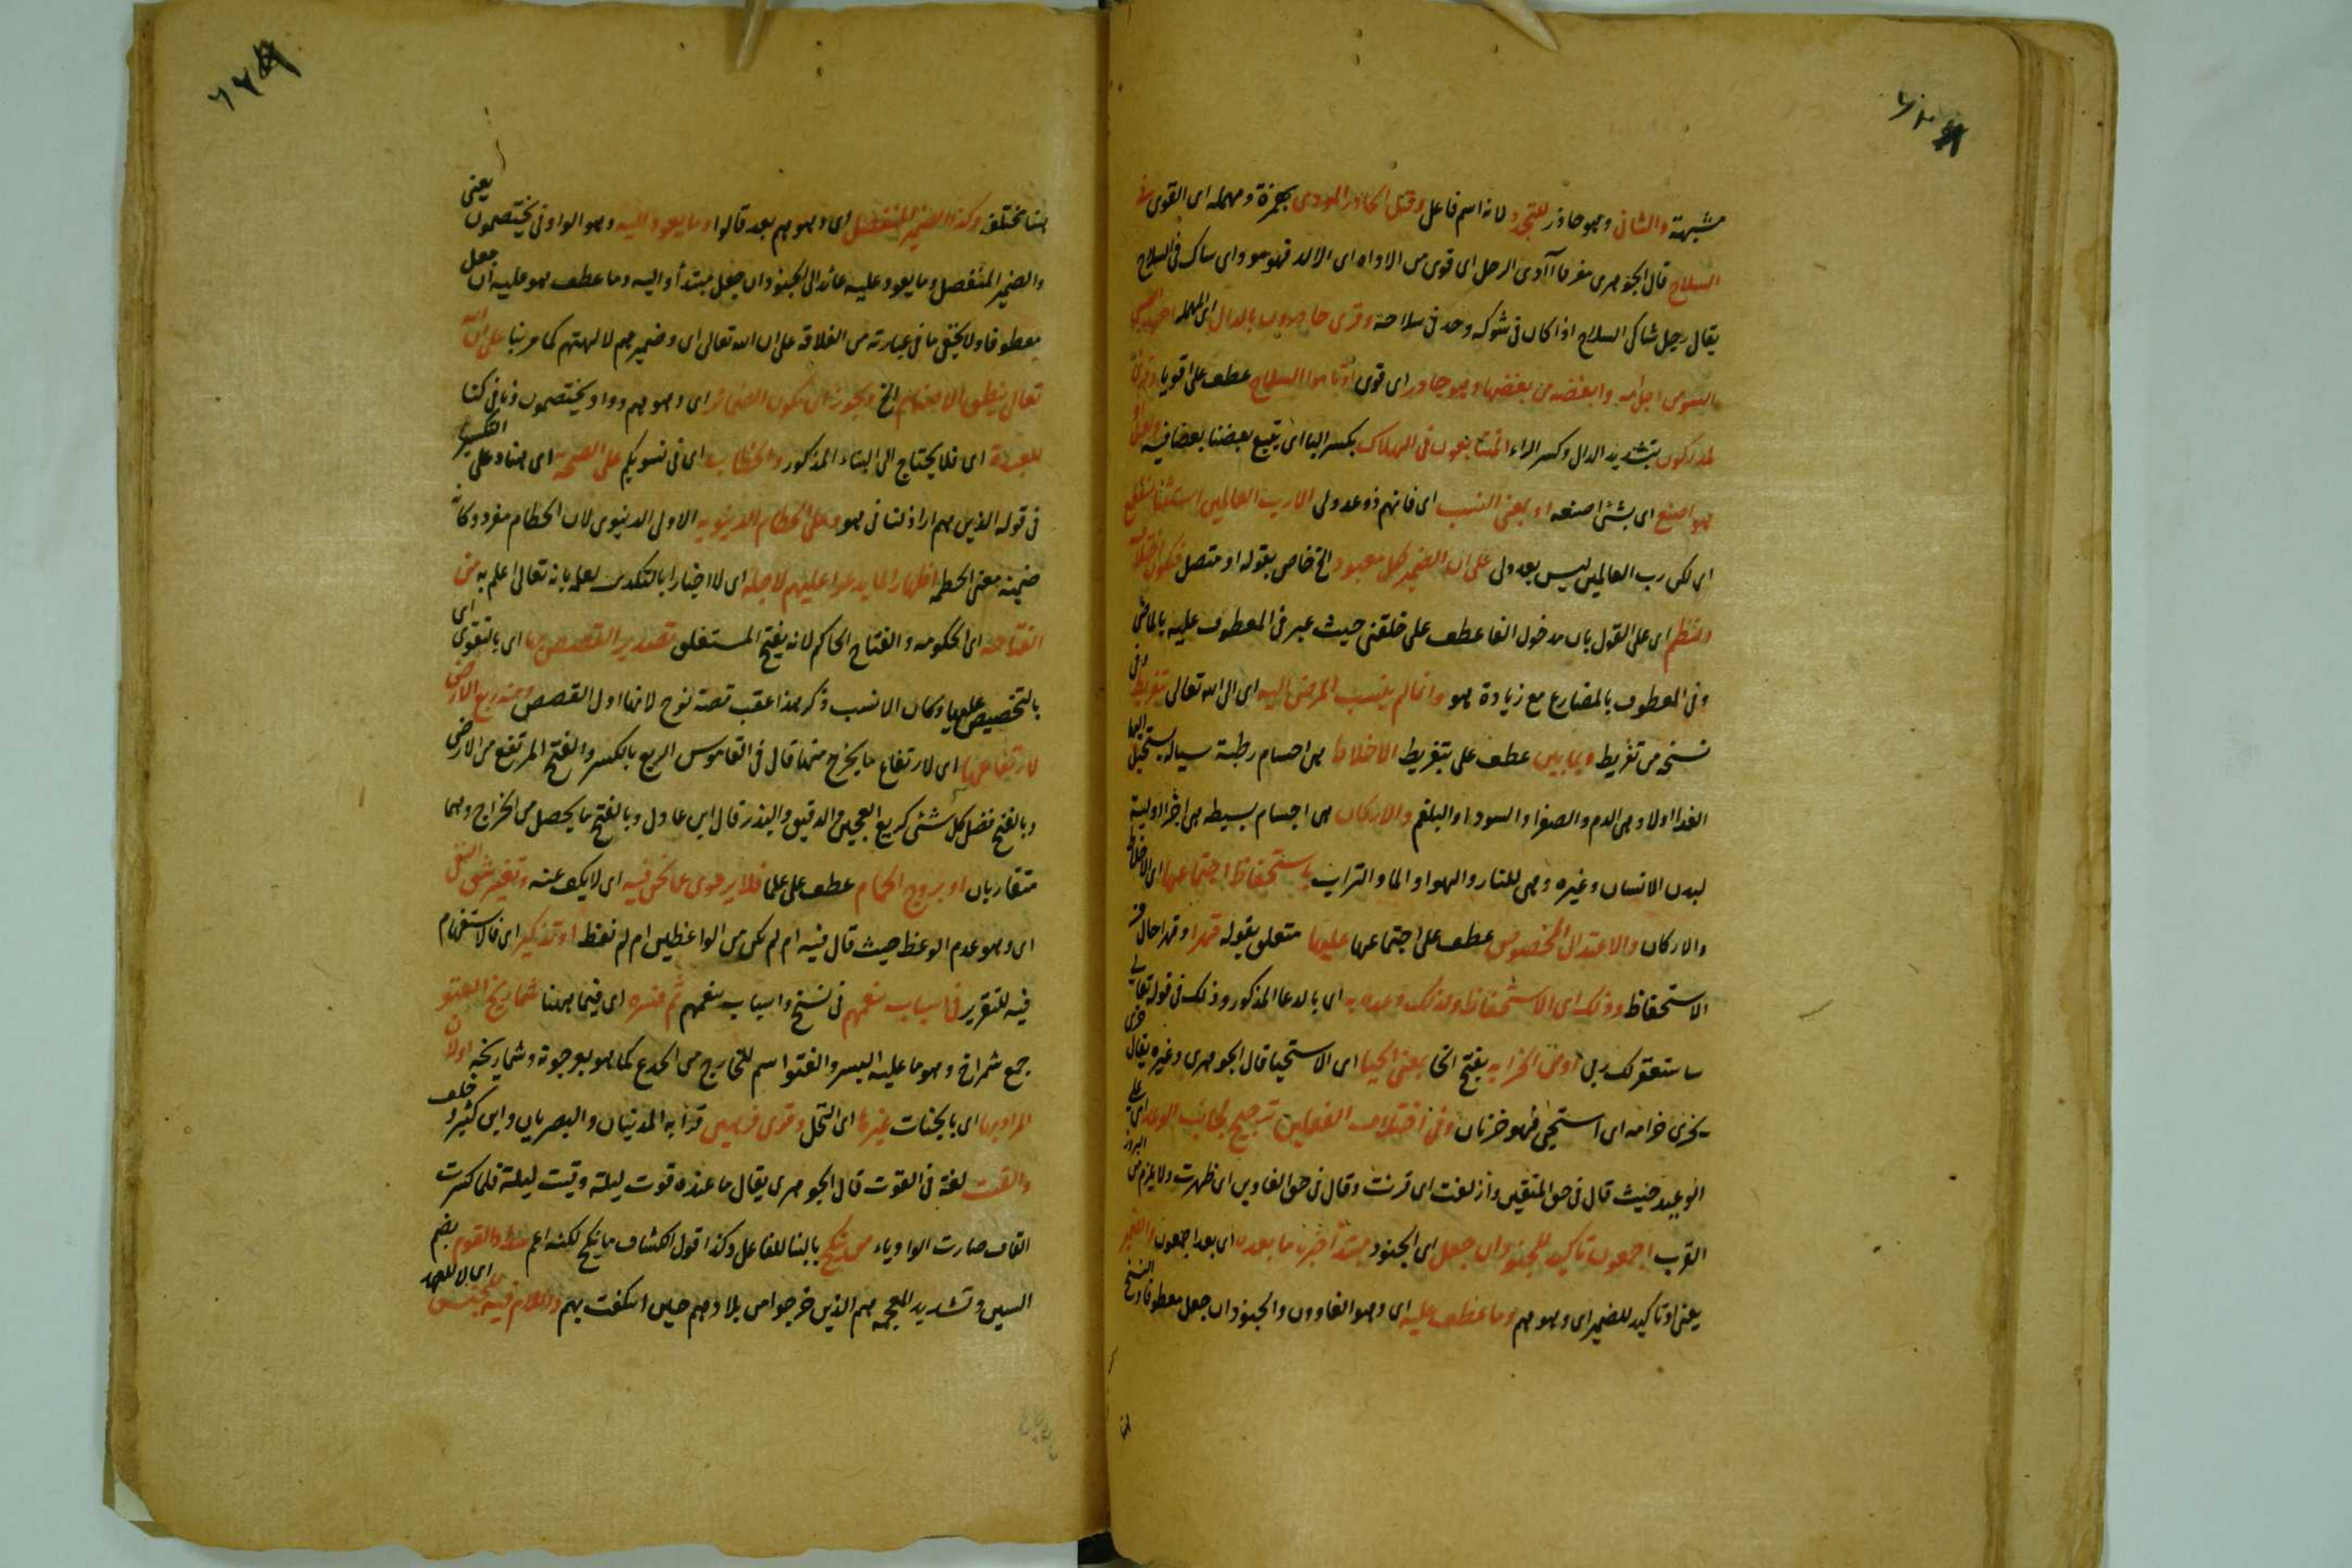 مشبهة والثاني وهو حاذر للتجدد لانه اسم فاعل وقيل الحاذر المودي بهمزة ومهمله اى القوى في
السلاح قال الجوهرى مفرقا آأدى الرجل اى قوى من الاداه اى الالة فهو مود اى شاك في السلاح
يقال رجل شاكى السلاح اذا كان ذى شوكه وحد فى سلاحه وقرئ حادرون بالدال اى المهمله احب الصبى
السوء من اجل امه وابغضه من بغضها وهو حادر اى قوى او تاموا السلاح عطف على اقويا وقرئ
لمدركون بتشديد الدال وكسر الراء لمتتابعون فى الهلاك بكسر البا اى يتبع بعضنا بعضا فيه
هو اصنع اى بشئ اصنعه او بمعنى النسب اى فانهم ذو عدو لى الا رب العالمين استثنا منقطع
اى لكن رب العالمين ليس بعدو لى على ان الضمير لكل معبود الخ خاص بقوله او متصل
والنظم اى على القول بان مدخول الفا عطف على خلقنى حيث عبر فى المعطوف عليه بالماضى
وفى المعطوف بالمضارع مع زيادة هو وانما لم ينسب المرض اليه اى الى الله تعالى بتفريط وفى
نسخه من تفريط وبما بين عطف على بتفريط الاخلاط هى اجسام رطبة سياله يستحيل اليها
الغذا اولا وهى الدم والصفرا والسودا والبلغم والاركان هى اجسام بسيطه هى اجزا اولية
لبدن الانسان وغيره وهى للنار والهوا والما والتراب باستحفاظ اجتماعها اى الاخلاط
والاركان والاعتدال المخصوص عطف على اجتماعها عليها متعلق بقوله قهرا وقهرا حال من
الاستحفاظ وذلك اى الاستحفاظ ولذلك وعده به اى بالدعا المذكور وذلك فى قوله تعالى
ساستغفر لك ربى او من الخزايه بفتح الخا بمعنى الحيا اى الاستحيا قال الجوهرى وغيره يقال خزى
يخزى خزايه اى استحيى فهو خزيان وفى اختلاف الفعلين ترجيح لجانب الوعد اى على
الوعيد حيث قال فى حق المتقين وازلفت اى قربت وقال فى حق الغاوين اى ظهرت ولا يلزم من البروز
القرب اجمعون تاكيد للجنود ان جعل اى الجنود مبتدأ خبره ما بعده اى بعد اجمعون والضمير
يعنى او تاكيد للضمير اى وهو هم وما عطف عليه اى وهو الغاوون والجنود ان جعل معطوفا
هنا مختلفه وكذا الضمير المنفصل اى وهو هم بعد قالوا وما يعود اليه وهو الواو فى يختصمون يعنى
والضمير المنفصل وما يعود عليه عائد الى الجنود ان جعل مبتدأ واليه وما عطف هو عليه ان جعل
معطوفا ولا يخفى ما فى عبارته من الغلاقه على ان الله تعالى اى وضمير هم لالهتهم كما مر بنا على ان الله
تعالى ينطق الاصنام الخ ويجوز ان تكون الضمائر اى وهو هم وواو يختصمون ونا فى كنا
للعبدة اى فلا يحتاج الى البناء المذكور والخطاب اى فى نسويكم على اى هنا وعلى
فى قوله الذين هم اراذلنا فى هود وعلى الحطام الدنيويه الاولى الدنيوى لان الحطام مفرد وكانه
ضمنه معنى الحطمه اظهارا لما يدعوا عليهم لاجله اى لا اخبارا بالتكذيب لعلمه بانه تعالى اعلم به من
الفتاحه اى الحكومه والفتاح الحاكم لانه يفتح المستغلق تصدير القصص بها اى بالتقوى اى
بالتخصيص عليها وكان الانسب ذكر هذا عقب قصة نوح لانها اول القصص ومنه ريع الارض
لارتفاعها اى لارتفاع ما يخرج منها قال فى القاموس الريع بالكسر والفتح المرتفع من الارض
وبالفتح فضل كل شئ كريع العجين والدقيق والبذر قال ابن عادل وبالفتح ما يحصل من الخراج وهما
متقاربان او بروج الحمام عطف على علما فلا يرعوى عما نحن فيه اى لا يكف عنه وتغيير شق النفى
اى وهو عدم الوعظ حيث قال فيه ام لم تكن من الواعظين ام لم تعظ او تذكير اى فالاستفهام
فيه للتقرير فى اسباب تنعمهم فى نسخ واسباب تنعمهم ثم فسره اى فيما ههنا شماريخ القنو
جمع شمراخ وهو ما عليه البسر والقنو اسم للخارج من الجذع كما هو بعرجونه وشماريخه اولان
المراد بها اى بالجنات غيرها اى النخل وقرئ فرهين قرأ به المدنيان والبصريان وابن كثير وخلف
والقيت لغة فى القوت قال الجوهرى يقال ما عنده قوت ليلة وقيت ليلة فلما كسرت
القاف صارت الواو ياء من ينكح بالبنا للفاعل وكذا قول الكشاف ما ينكح لكنه اعم والقوم بضم
السين وتشديد المعجمه هم الذين خرجوا من بلادهم حين اسكفت بهم واللام فيه للجنس اى لا للعهد